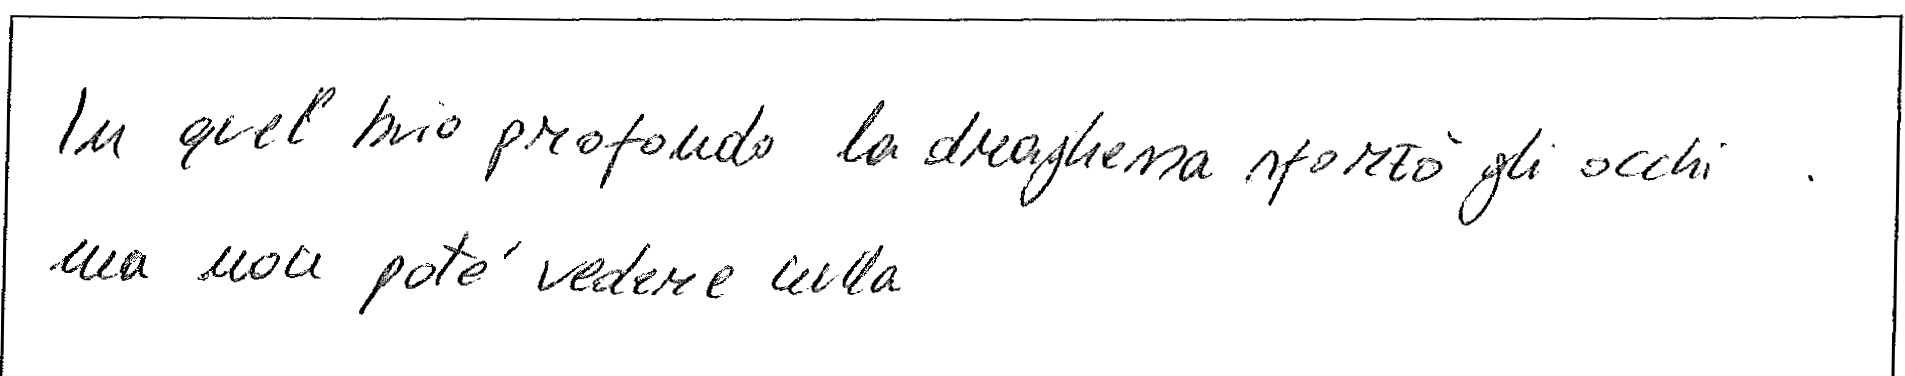 In quel buio profondo la draghessa sforzò gli occhi .
ma non poté vedere nulla